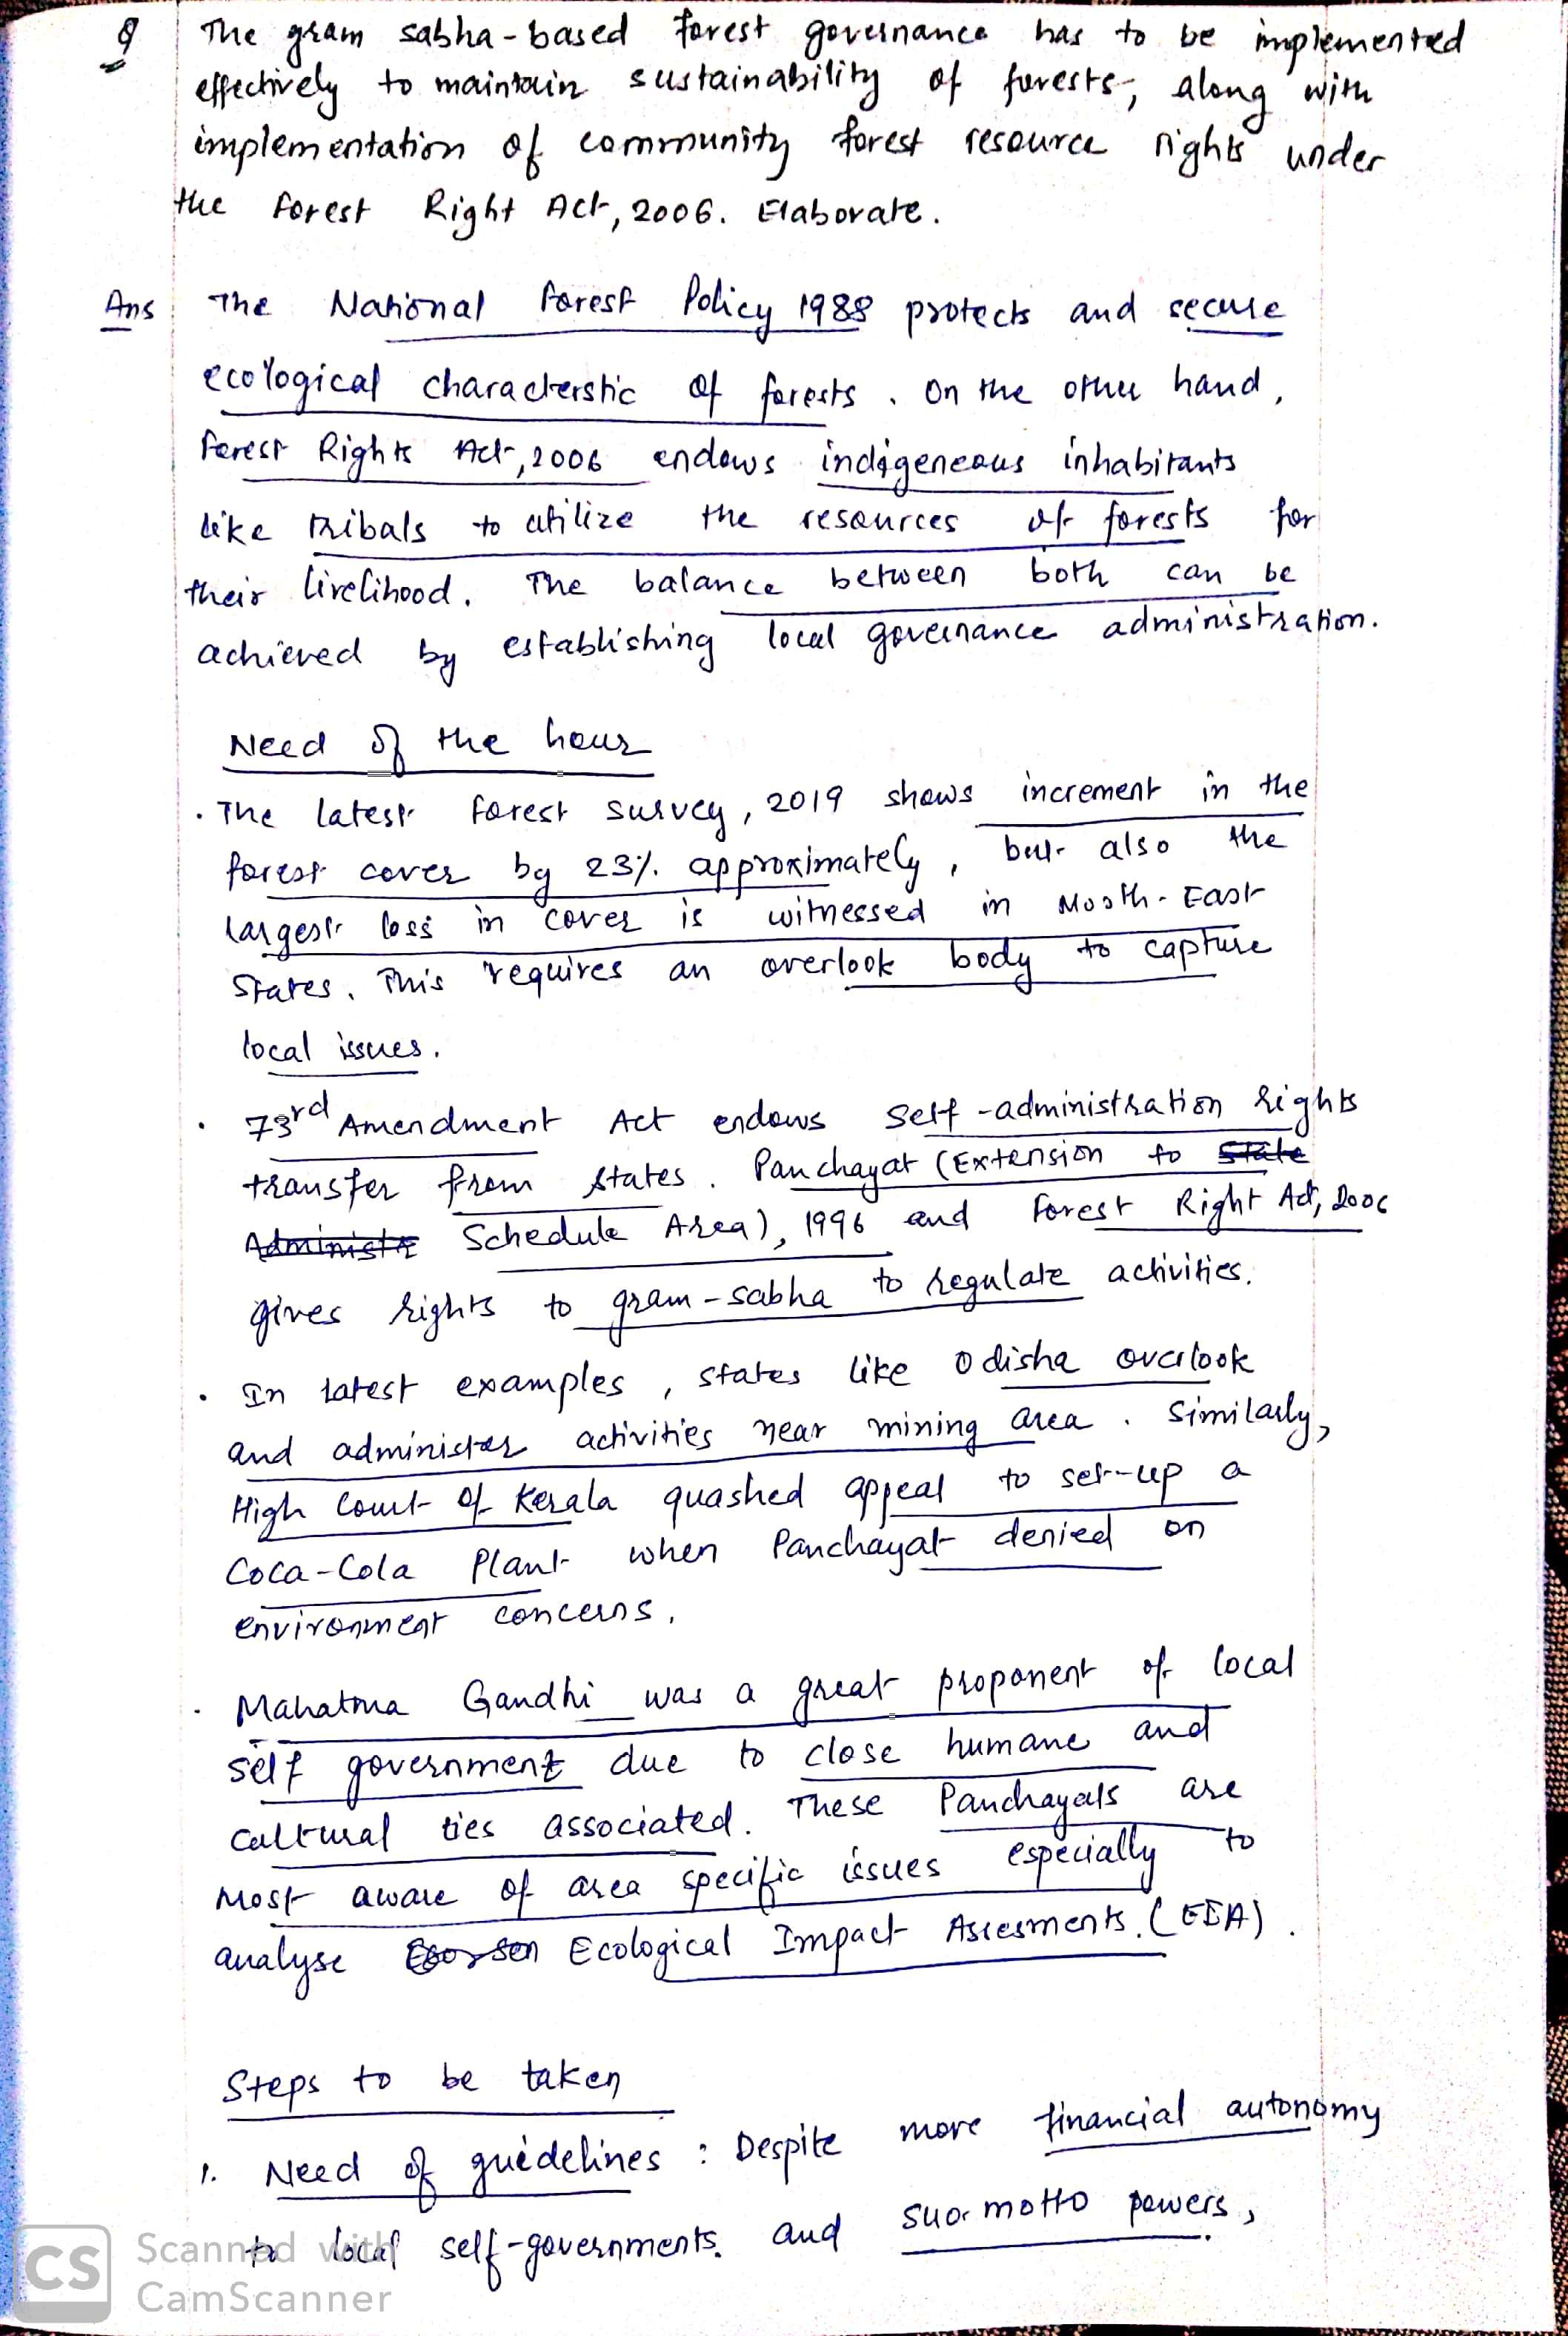 Q The gram sabha-based forest governance has to be implemented
effectively to maintain sustainability of forests, along with
implementation of community forest resource rights under
the Forest Right Act, 2006. Elaborate.
Ans The National Forest Policy 1988 protects and secure
ecological characterstic of forests. On the other hand,
Forest Rights Act, 2006 endows indigeneous inhabitants
like tribals to utilize the resources of forests for
their livelihood. The balance between both can be
achieved by establishing local governance administration.
Need of the hour
. The latest forest survey, 2019 shows increment in the
forest cover by 23% approximately, but also the
largest loss in cover is witnessed in North-East
States. This requires an overlook body to capture
local issues.
. 73rd Amendment Act endows self-administration rights
transfer from states. Panchayat (Extension to State
Administr Schedule Area), 1996 and Forest Right Act, 2006
gives rights to gram-sabha to regulate activities.
. In latest examples, states like Odisha overlook
and administer activities near mining area. Similarly,
High Court of Kerala quashed appeal to set-up a
Coca-Cola Plant when Panchayat denied on
environment concerns.
. Mahatma Gandhi was a great proponent of local
self government due to close humane and
cultural ties associated. These Panchayats are
most aware of area specific issues especially to
analyse Ecological Impact Assesments. (EIA).
Steps to be taken
1. Need of guidelines : Despite more financial autonomy
to local self-governments. and suo-motto powers,
CS Scanned with
CamScanner